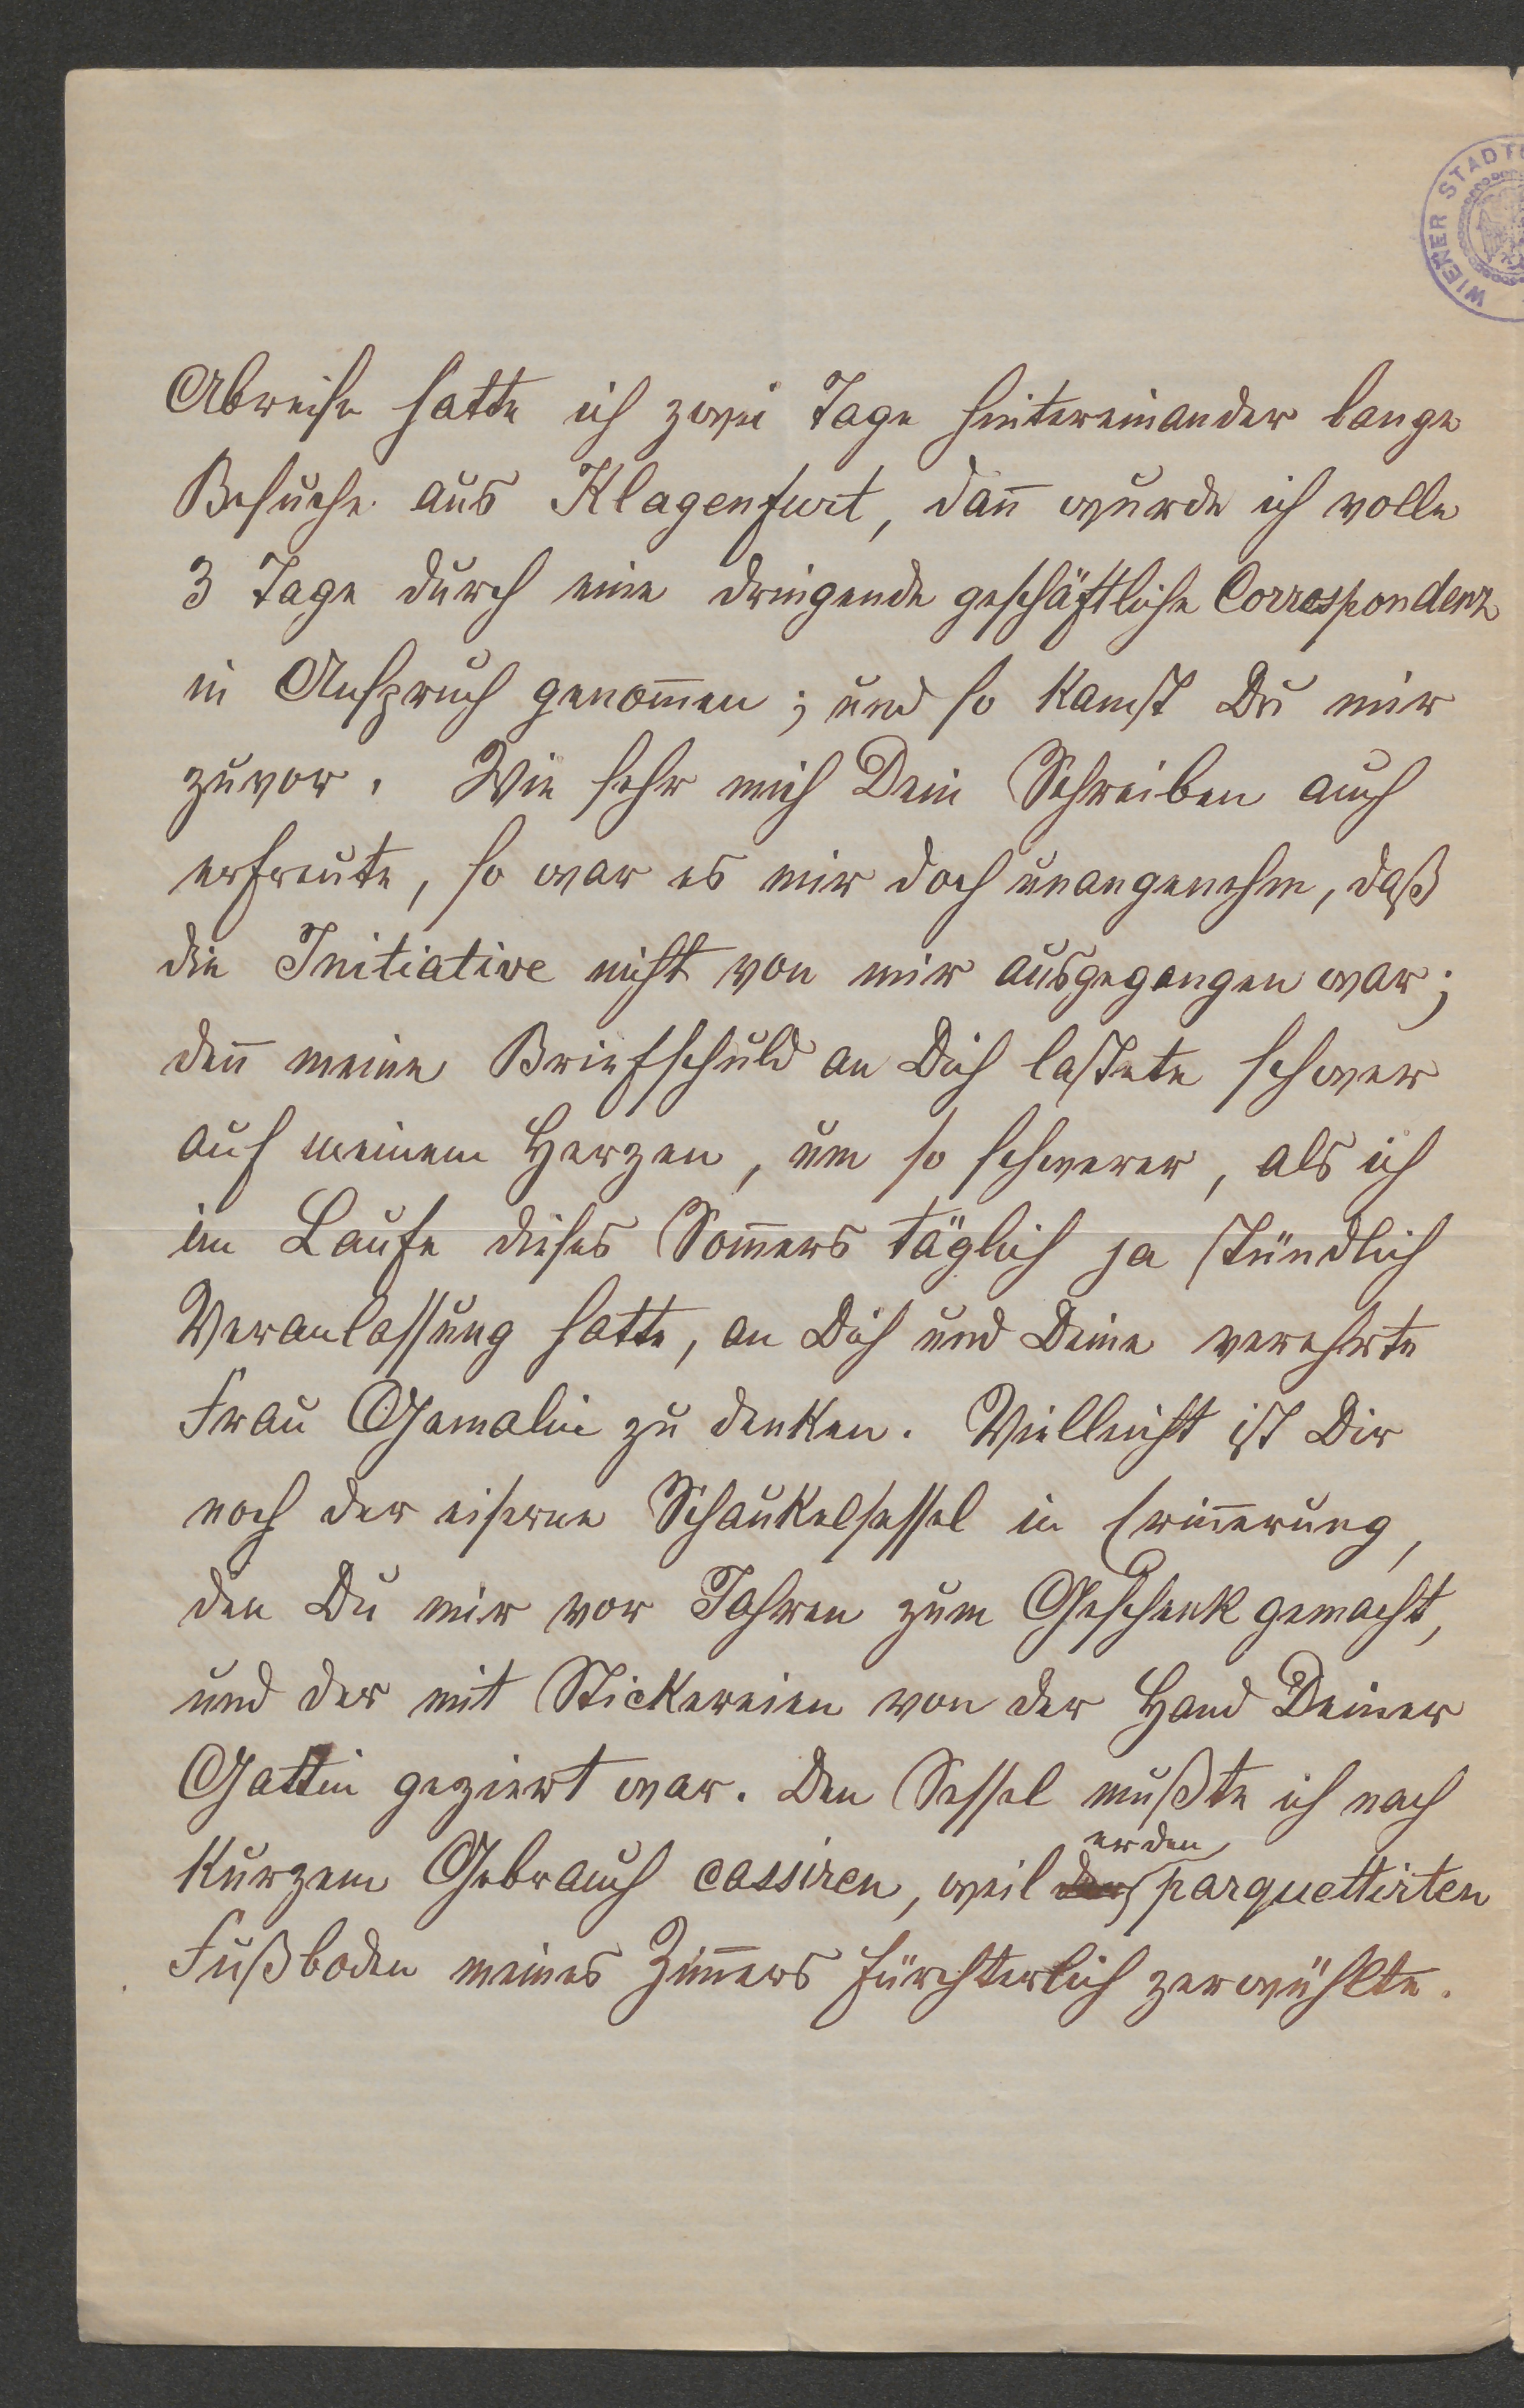 WIENER STADT
Abreise hatte ich zwei Tage hintereinander lange
Besuche aus Klagenfurt, dan̄ wurde ich volle
3 Tage durch eine dringende geschäftliche Correspondenz
in Anspruch genom̄en; und so kamst Du mir
zuvor. Wie sehr mich Dein Schreiben auch
erfreute, so war es mir doch unangenehm, daß
die Initiative nicht von mir ausgegangen war;
den̄ meine Briefschuld an Dich lastete schwer
auf meinem Herzen, um so schwerer, als ich
im Laufe dieses Som̄ers täglich ja stündlich
Veranlassung hatte, an Dich und Deine verehrte
Frau Gemalin zu denken. Vielleicht ist Dir
noch der eiserne Schaukelsessel in Erin̄erung,
den Du mir vor Jahren zum Geschenk gemacht,
und der mit Stickereien von der Hand Deiner
Gattin geziert war. Den Sessel mußte ich nach
er den
kurzem Gebrauch cassiren, weil der parquettirten
Fußboden meines Zim̄ers fürchterlich zerwühlte.